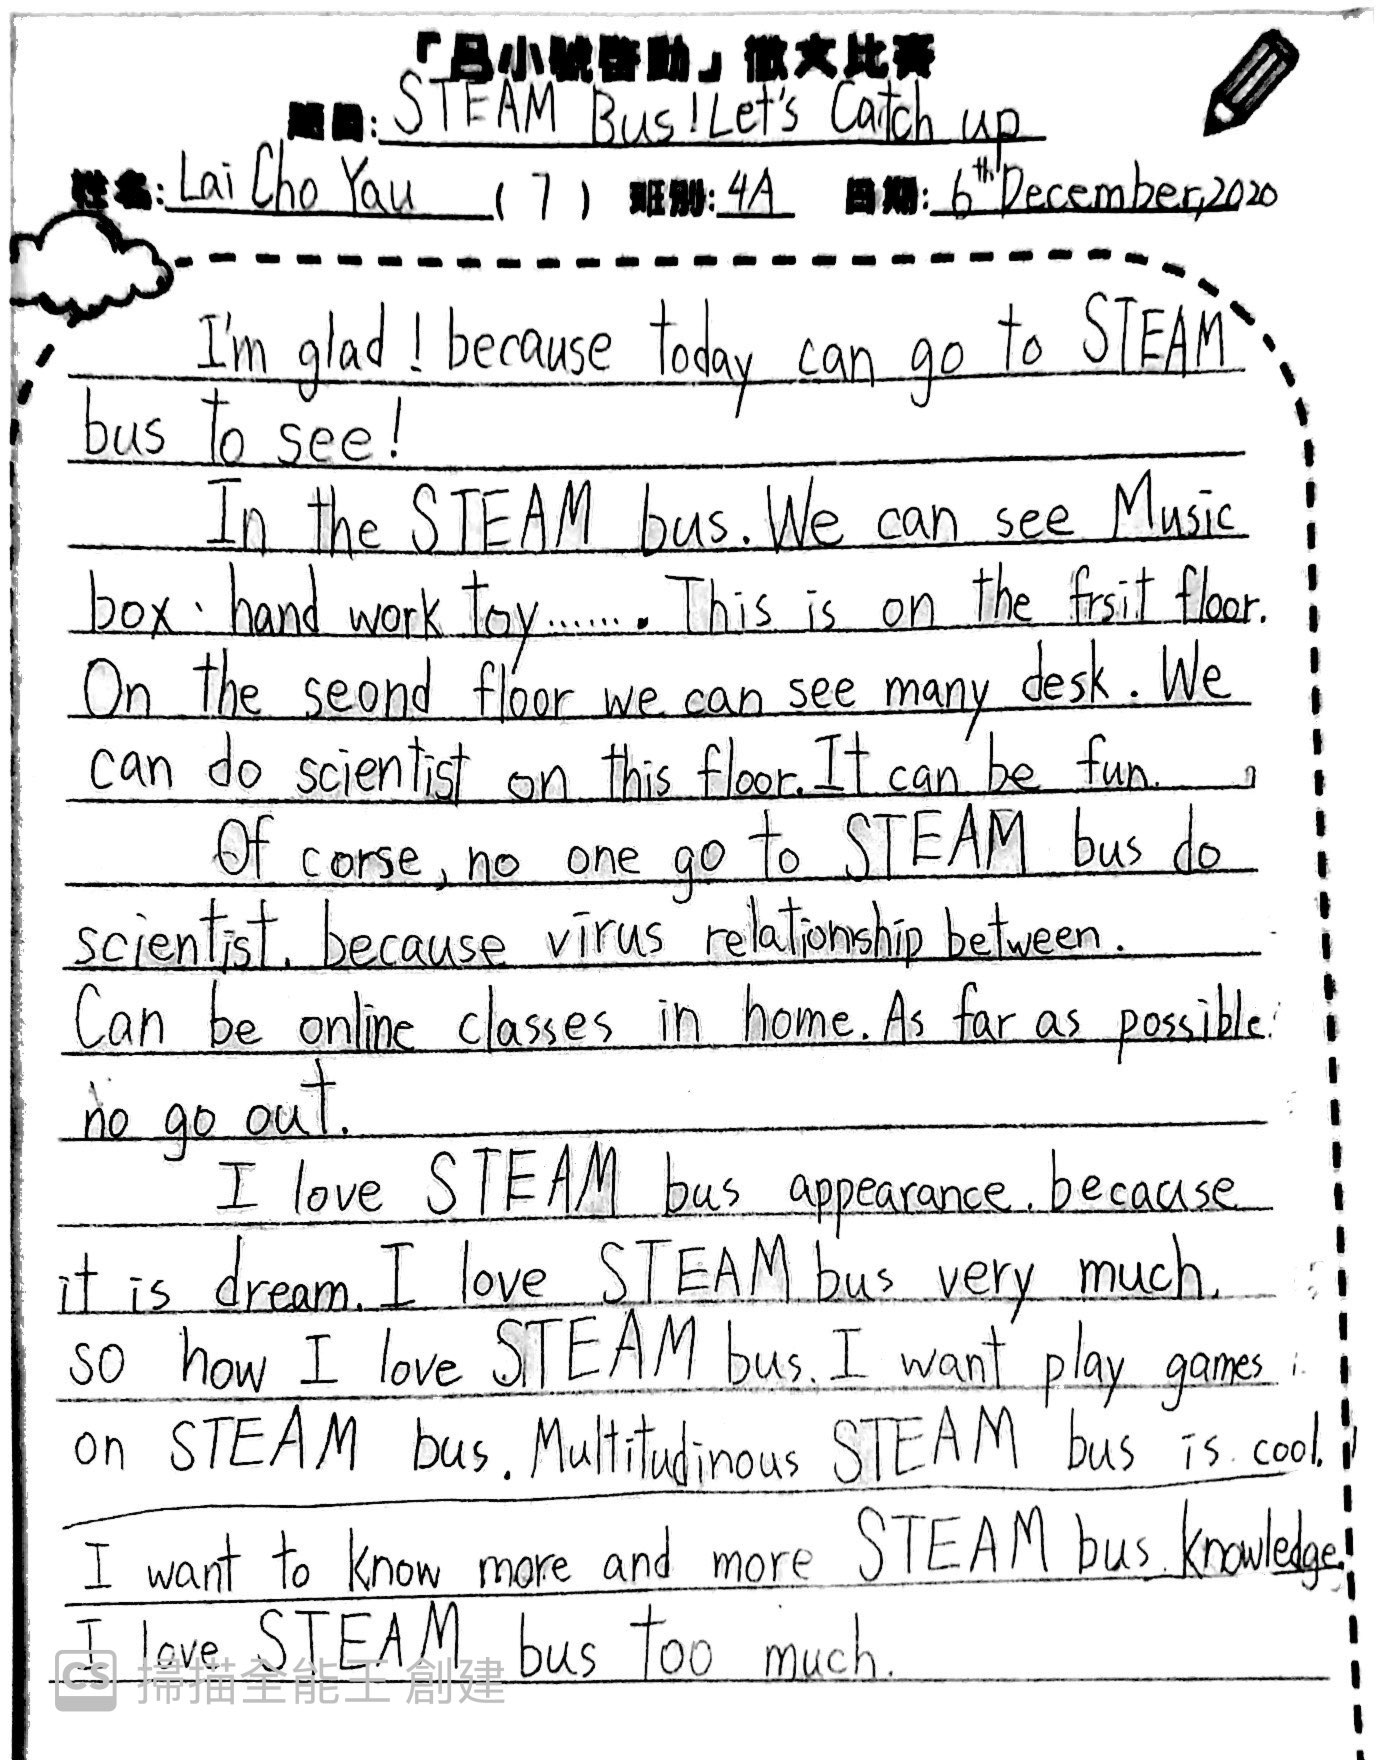 「呂小號啓動」徵文比賽
題目: STEAM Bus! Let's Catch up
姓名: Lai Cho Yau ( 7 ) 班別: 4A 日期: 6th December, 2020
I'm glad! because today can go to STEAM
bus to see!
In the STEAM bus. We can see Music
box、hand work toy....... This is on the frsit floor.
On the seond floor we can see many desk. We
can do scientist on this floor. It can be fun.
Of corse, no one go to STEAM bus do
scientist. because virus relationship between.
Can be online classes in home. As far as possible
no go out.
I love STEAM bus appearance. because
it is dream. I love STEAM bus very much.
so how I love STEAM bus. I want play games
on STEAM bus. Multitudinous STEAM bus is cool.
I want to know more and more STEAM bus knowledge.
I love STEAM bus too much.
CS 掃描全能王 創建